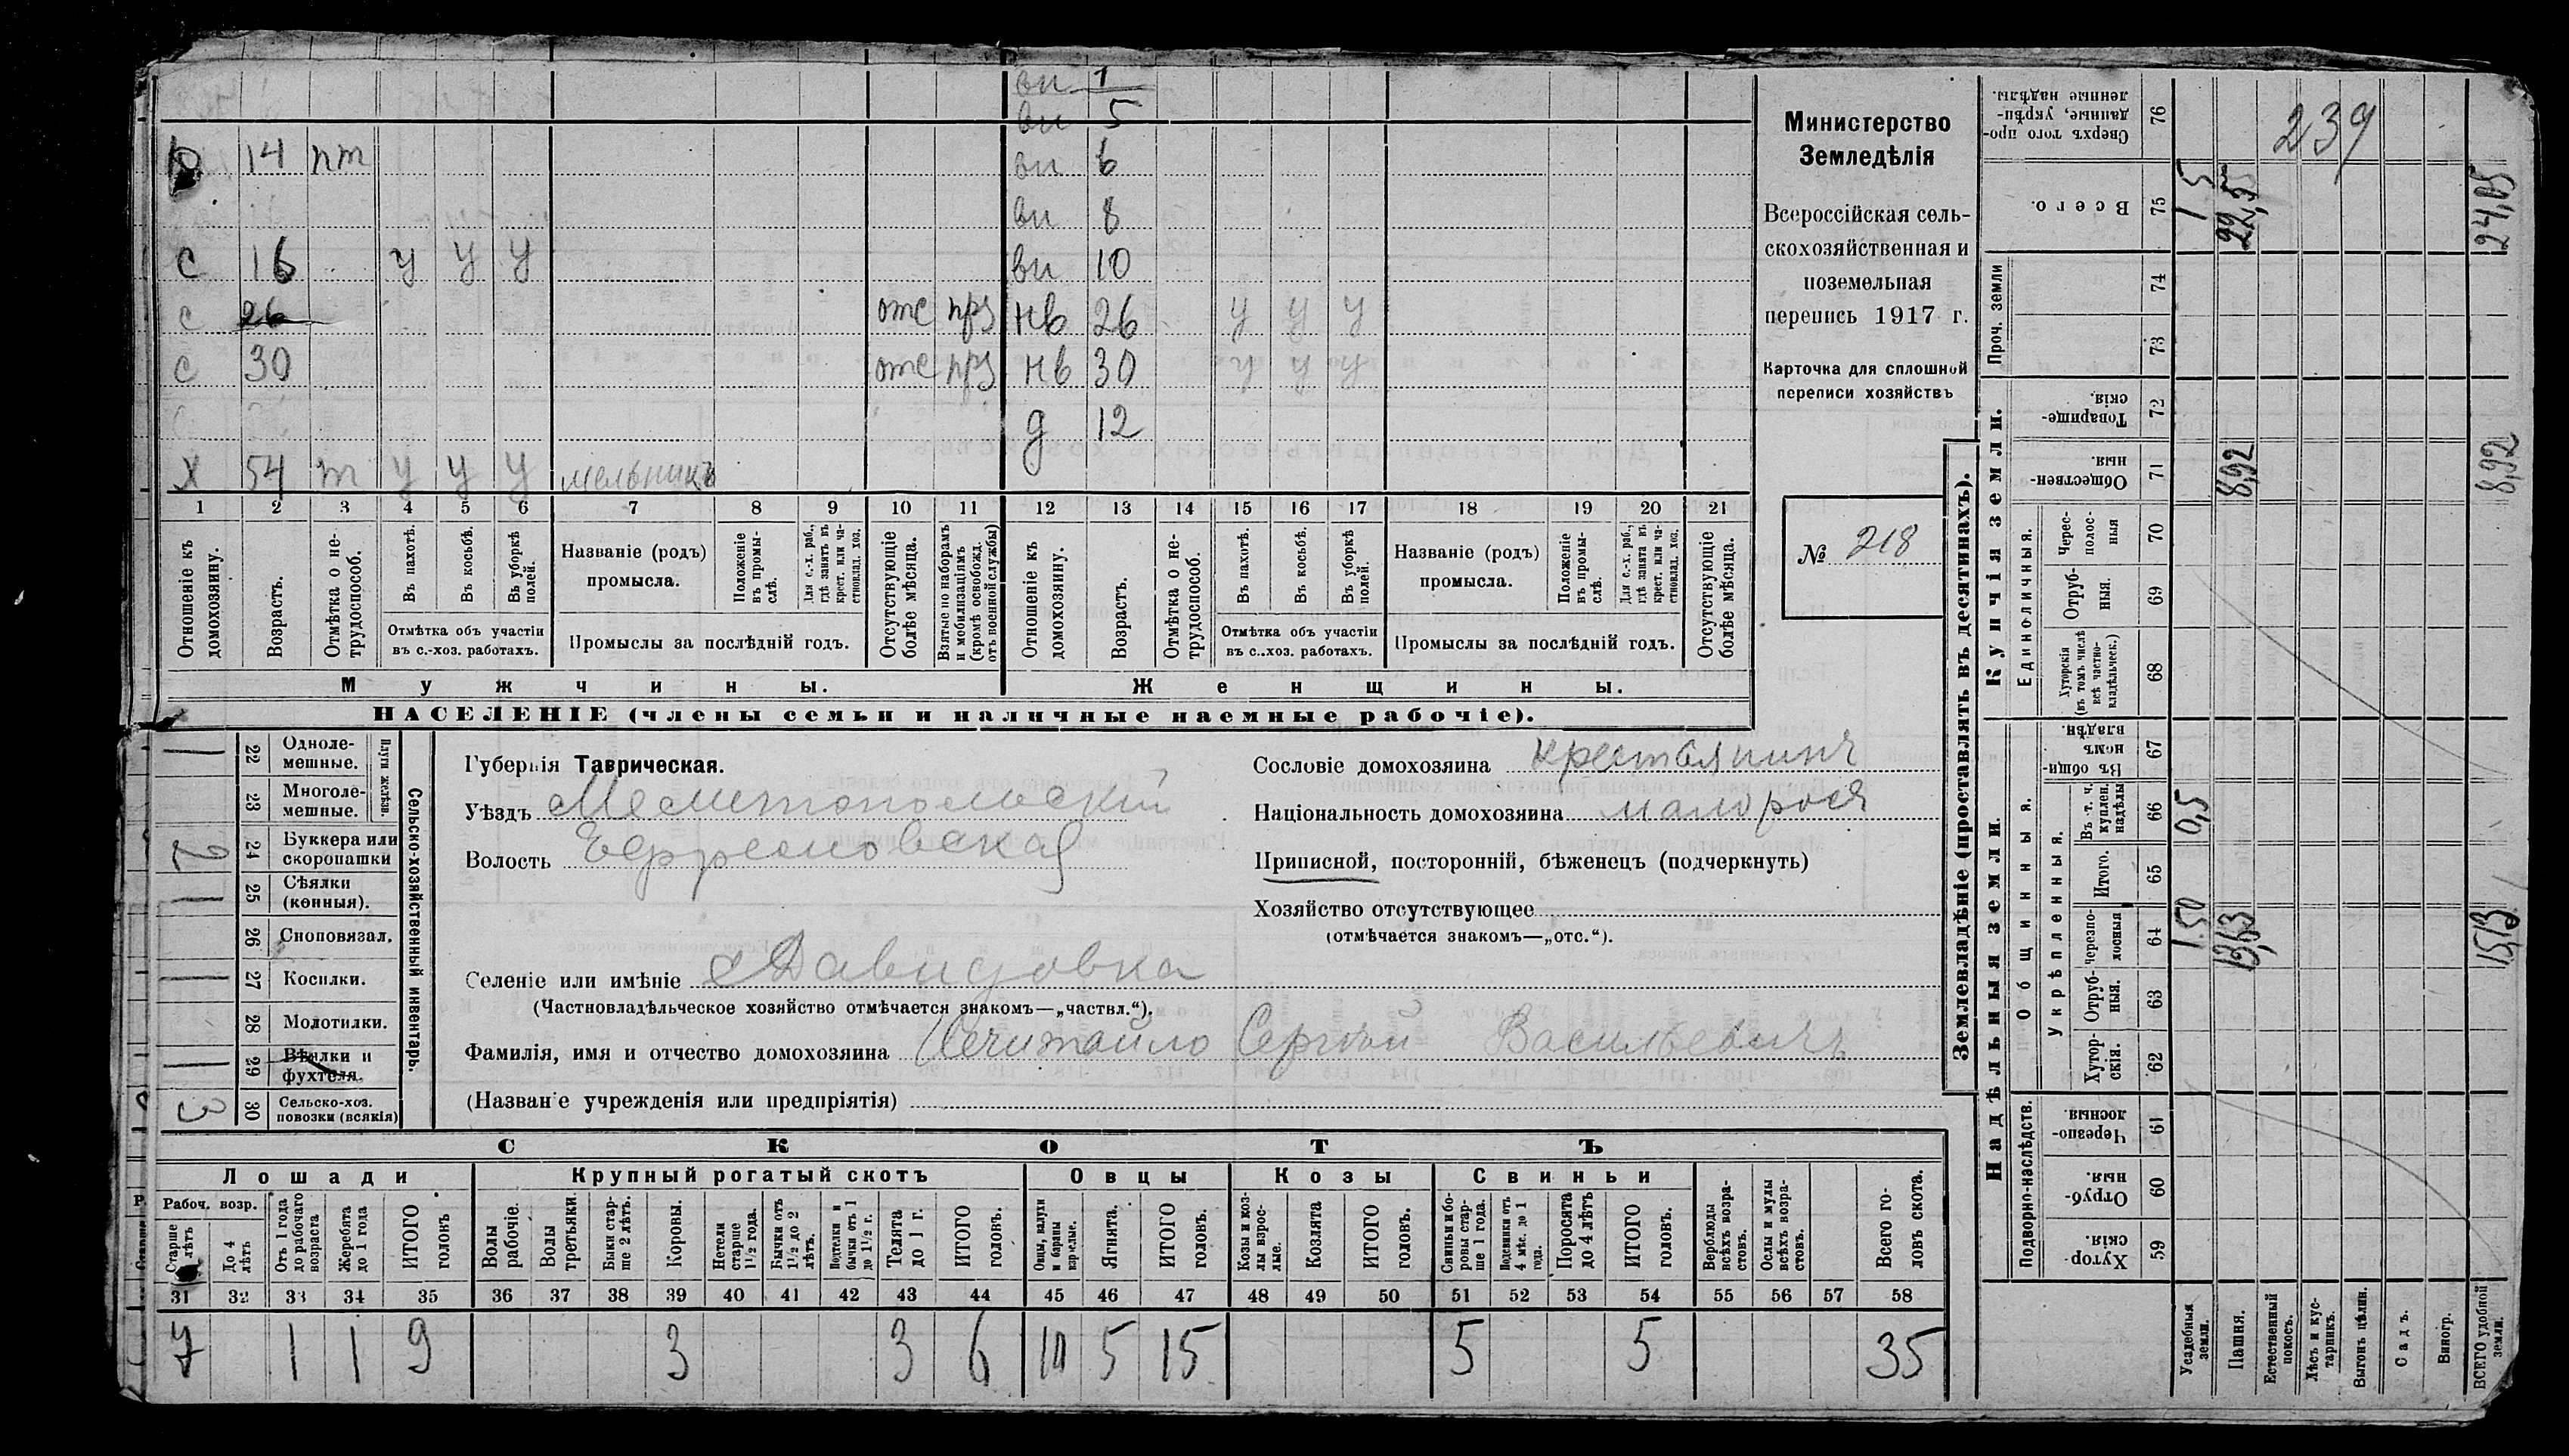 вп 1
вп 5
14 пт вп 6
вп 8
с 16 у у у вп 10
с 26 отс прз нв 26 у у у
с 30 отс прз нв 30 у у у
д 12
х 54 т у у у мельникъ
1 2 3 4 5 6 7 8 9 10 11 12 13 14 15 16 17 18 19 20 21
Отношеніе къ домохозяину.
Возрастъ.
Отмѣтка о не-трудоспособ.
Въ пахотѣ.
Въ косьбѣ.
Въ уборкѣ полей.
Отмѣтка объ участіи
въ с.-хоз. работахъ.
Названіе (родъ)
промысла.
Положеніе въ промы-слѣ.
Для с.-х. раб., гдѣ занятъ въ крест. или ча-стновлад. хоз.
Промыслы за послѣдній годъ.
Отсутствующіе болѣе мѣсяца.
Взятые по наборамъ и мобилизаціямъ (кромѣ освобожд. отъ военной службы)
Отношеніе къ домохозяину.
Возрастъ.
Отмѣтка о не-трудоспособ.
Въ пахотѣ.
Въ косьбѣ.
Въ уборкѣ полей.
Отмѣтка объ участіи
въ с..хоз. работахъ.
Названіе (родъ)
промысла.
Положеніе въ промы-слѣ.
Для с.-х. раб., гдѣ занята въ крест. или ча-стновлад. хоз.
Промыслы за послѣдній годъ.
Отсутствующіе болѣе мѣсяца.
Мужчины.
Женщины.
НАСЕЛЕНІЕ (члены семьи и наличные наемные рабочіе).
Министерство
Земледѣлія
Всероссійская сель-
скохозяйственная и
поземельная
перепись 1917 г.
Карточка для сплошной
переписи хозяйствъ
№ 218
Сельско-хозяйственный инвентарь.
Плуги желѣзн.
1 22 Однолемешные.
23 Многолемешные.
2 24 Буккера или скоропашки
1 25 Сѣялки (конныя).
26 Сноповязал.
1 27 Косилки.
28 Молотилки.
1 29 Вѣялки и фухтеля.
3 30 Сельско-хоз. повозки (всякія)
Губернія Таврическая.
Уѣздъ Мелитопольскій
Волость Ефремовская
Сословіе домохозяина крестьянинъ
Національность домохозяина малорося
Приписной, посторонній, бѣженецъ (подчеркнуть)
Хозяйство отсутствующее
(отмѣчается знакомъ—„отс.“).
Селеніе или имѣніе Давидовка
(Частновладѣльческое хозяйство отмѣчается знакомъ—„частвл.“).
Фамилія, имя и отчество домохозяина Нечитайло Сергѣй Васильевичъ
(Названіе учрежденія или предпріятія)
СКОТЪ
Лошади
Рабоч. возр.
Старше лѣтъ
До 4 лѣтъ
Отъ 1 года до рабочаго возраста
Жеребята до 1 года
ИТОГО головъ
Крупный рогатый скотъ
Волы рабочіе.
Волы третьяки.
Быки стар-ше 2 лѣтъ.
Коровы.
Нетели старше 1½ года.
Бычки отъ 1½ до 2 лѣтъ.
Подтелки и бычки отъ 1 до 1½ г.
Телята до 1 г.
ИТОГО головъ.
Овцы
Овцы, валухи и бараны взрослые.
Ягнята.
ИТОГО головъ.
Козы
Козы и коз-лы взрос-лые.
Козлята
ИТОГО головъ.
Свиньи
Свиньи и бо-ровы стар-ше 1 года.
Подсвинки отъ 4 мѣс. до 1 года.
Поросята до 4 лѣтъ
ИТОГО головъ.
Верблюды всѣхъ возра-стовъ.
Ослы и мулы всѣхъ возра-стовъ.
Всего го-ловъ скота.
31 32 33 34 35 36 37 38 39 40 41 42 43 44 45 46 47 48 49 50 51 52 53 54 55 56 57 58
7 1 1 9 3 3 6 10 5 15 5 5 35
Землевладѣніе (проставлять въ десятинахъ).
Надѣльныя земли.
Подворно-наслѣдств.
Хутор-скія. 59
Отруб-ныя. 60
Черезпо-лосныя. 61
Общинныя.
Укрѣпленныя.
Хутор-скія. 62
Отруб-ныя. 63
черезпо-лосныя 64
Итого. 65
Въ т. ч. куплен. надѣлы 66
Въ общи-номъ владѣн. 67
Купчія земли.
Единоличныя.
Хуторскія (въ томъ числѣ всѣ частно-владѣльческ.) 68
Отруб-ныя. 69
Черес-полос-ныя 70
Обществен-ныя. 71
Товарище-скія. 72
Проч. земли
73 74
Всего. 75
Сверхъ того про-данные, укрѣп-ленные надѣлы. 76
Усадебныя земли. 1.50 0,5 1 5
Пашня. 13,63 8,92 22,55
Естественный покосъ.
Лѣсъ и кус-тарникъ.
Выгонъ цѣлин.
Садъ.
Виногр.
ВСЕГО удобной земли. 15,13 8,92 24,05
239